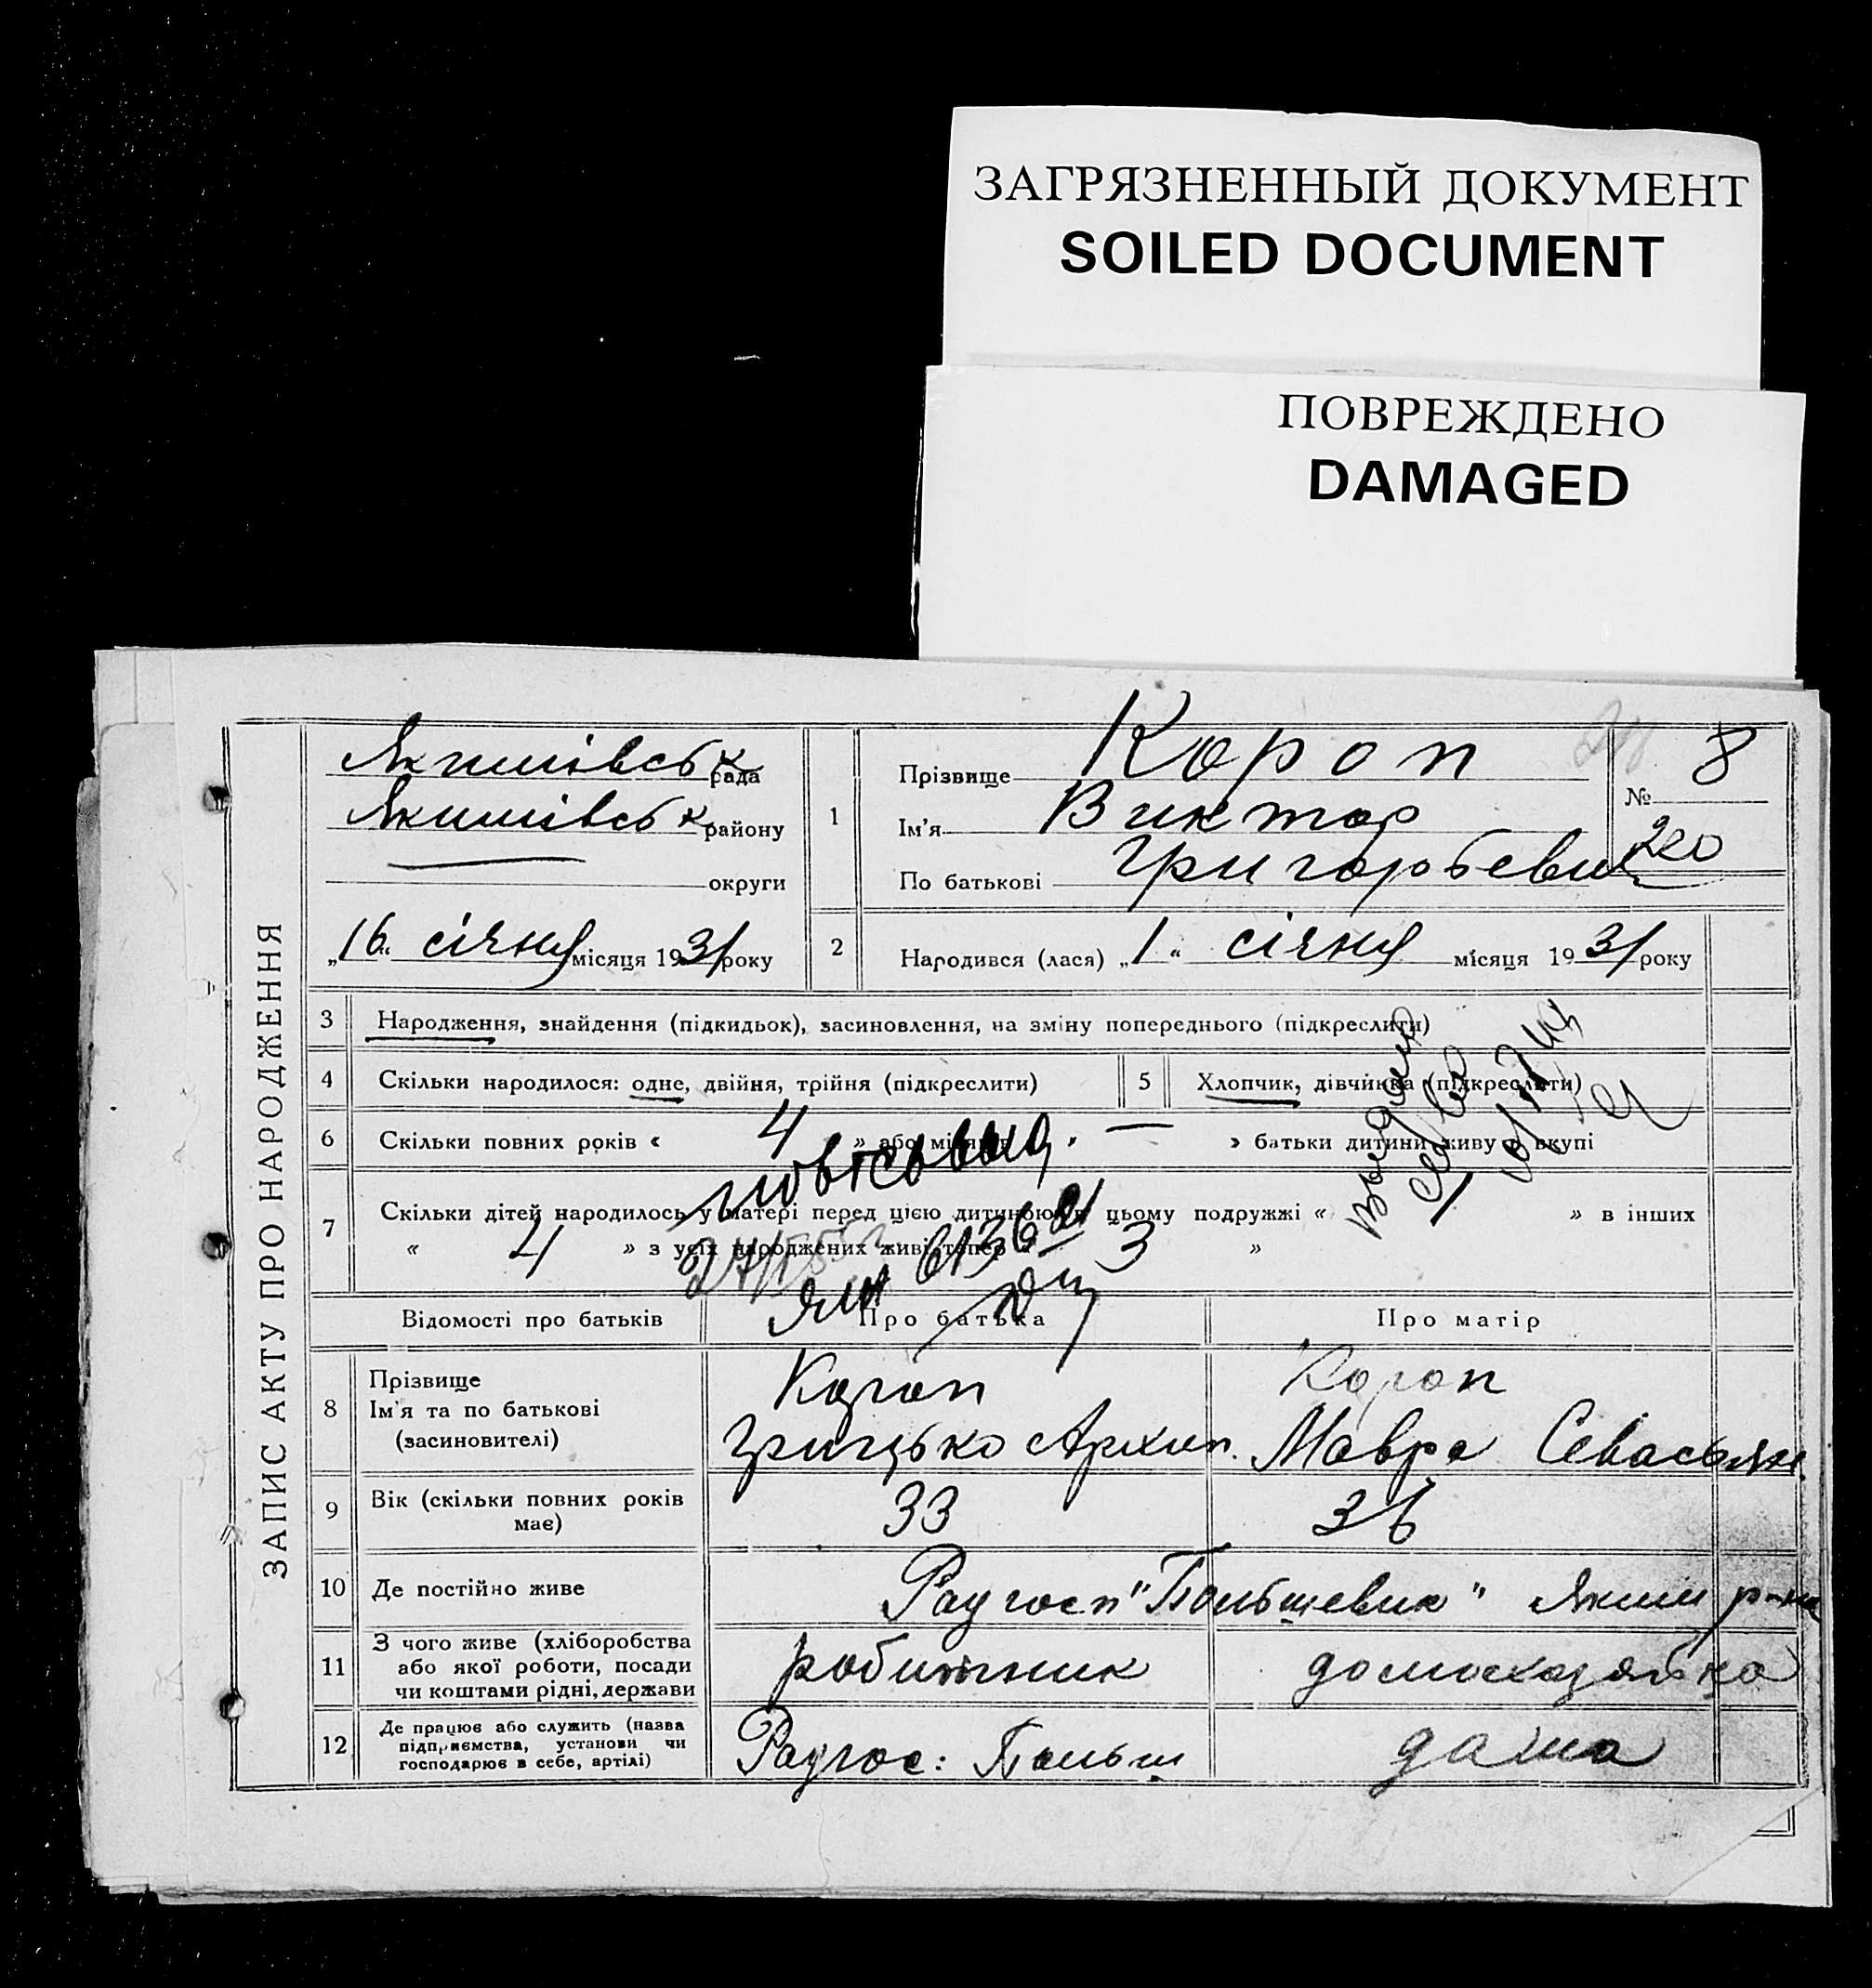 ЗАГРЯЗНЕННЫЙ ДОКУМЕНТ
SOILED DOCUMENT
ПОВРЕЖДЕНО
DAMAGED
ЗАПИС АКТУ ПРО НАРОДЖЕННЯ
Якимівськ рада
Якимівськ району
округи
„16" січня місяця 1931 року
1
Прізвище Короп
Ім'я Виктор
По батькові Григорьевич
№ 8
220
2
Народився (лася) „1" січня місяця 1931 року
3 Народження, знайдення (підкидьок), засиновлення, на зміну попереднього (підкреслити)
4 Скільки народилося: одне, двійня, трійня (підкреслити)
5 Хлопчик, дівчинка (підкреслити)
6 Скільки повних років « 4 » або місяців — » батьки дитини живуть вкупі
7 Скільки дітей народилось у матері перед цією дитиною в цьому подружжі « » в інших
« 4 » з усіх народжених живі тепер « 3 »
Выдано
Відомості про батьків Про батька Про матір
8 Прізвище
Ім'я та по батькові
(засиновителі)
Короп
Грицько Архип.
Короп
Мавра Севастьян.
9 Вік (скільки повних років
має)
33
36
10 Де постійно живе
Радгосп "Большевик" Яким р-на
11 З чого живе (хліборобства
або якої роботи, посади
чи коштами рідні, держави
робитник
домохазяйка
12 Де працює або служить (назва
підприємства, установи чи
господарює в себе, артілі)
Радгос: Больш
дома